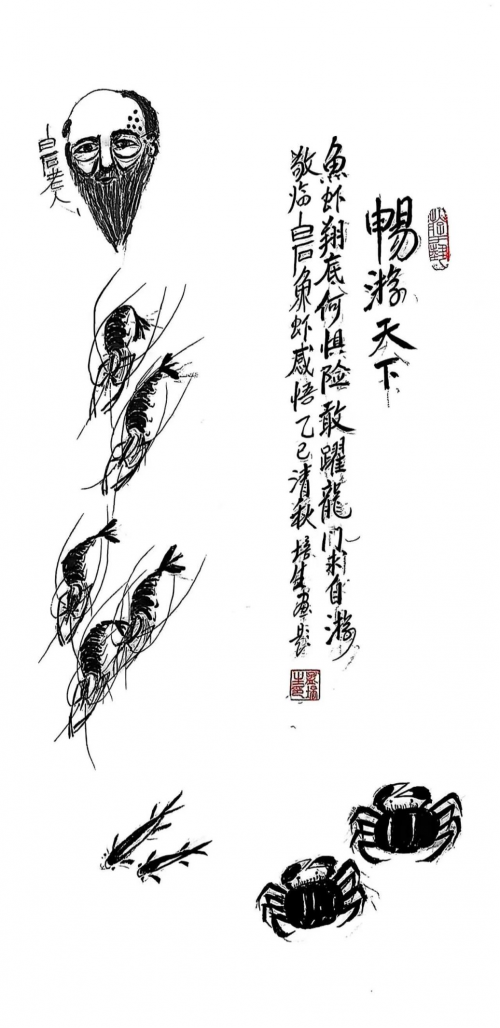 暢游天下
魚虾翔底何惧险敢躍龍门求自游
敬临白石魚虾感悟乙巳清秋培生画题
白石老人